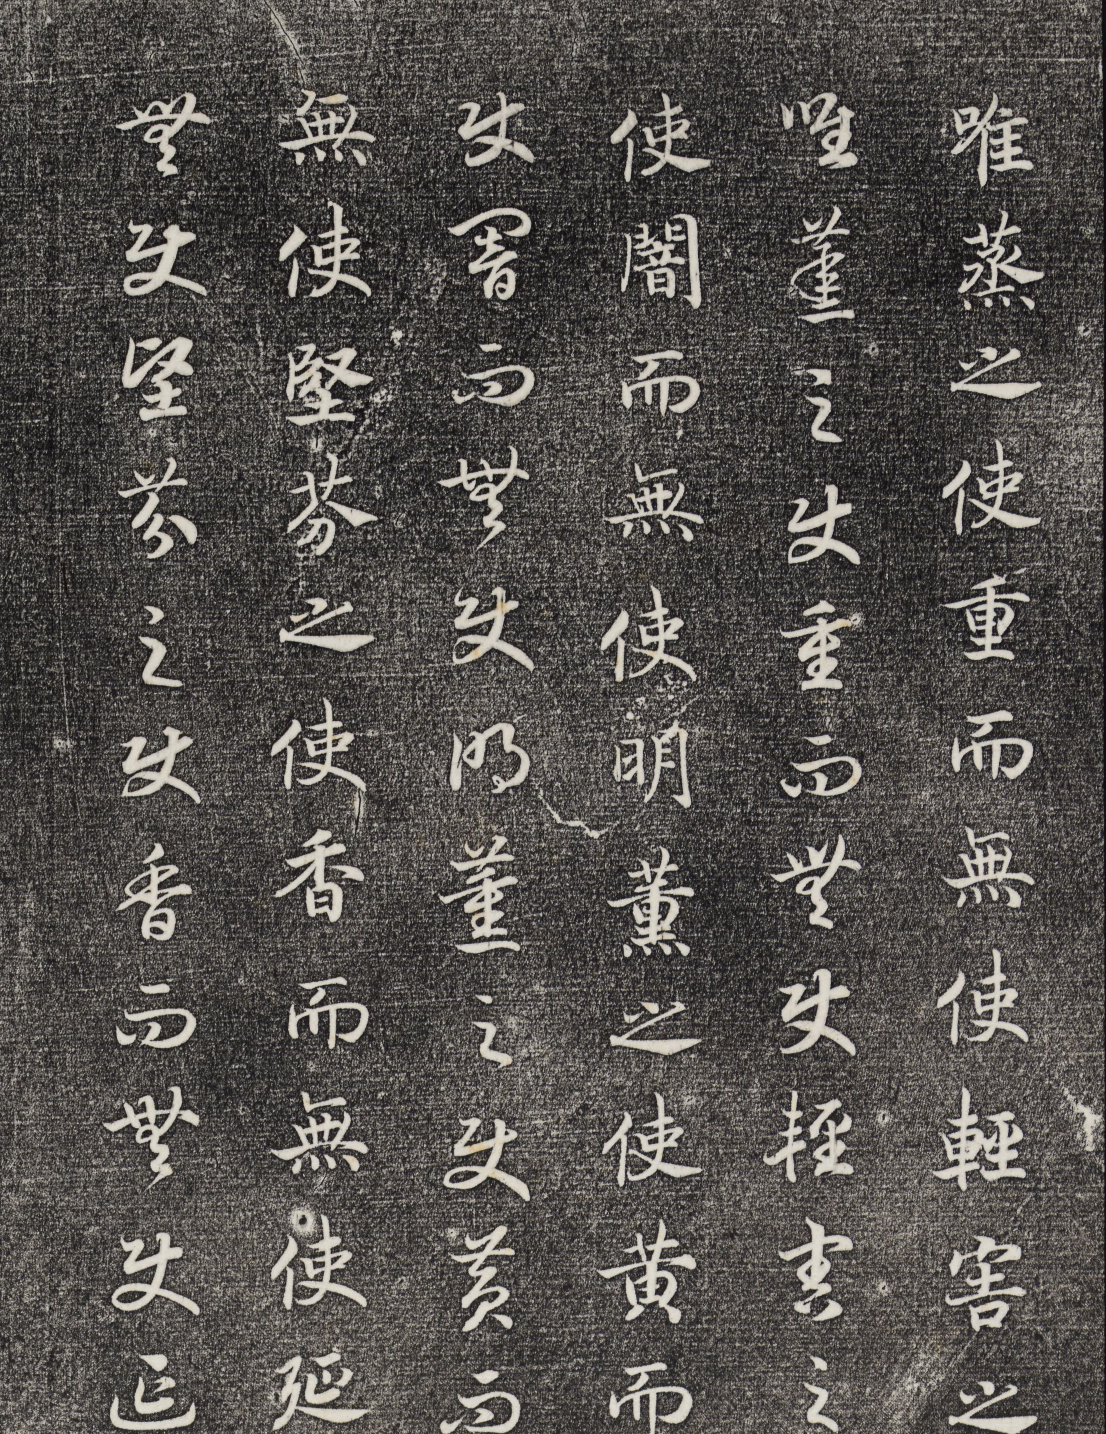 唯蒸之使重而無使輕害之
唯蒸之使重而無使輕害之
使闇而無使明薰之使黄而
使闇而無使明薰之使黄而
無使堅芬之使香而無使延
無使堅芬之使香而無使延